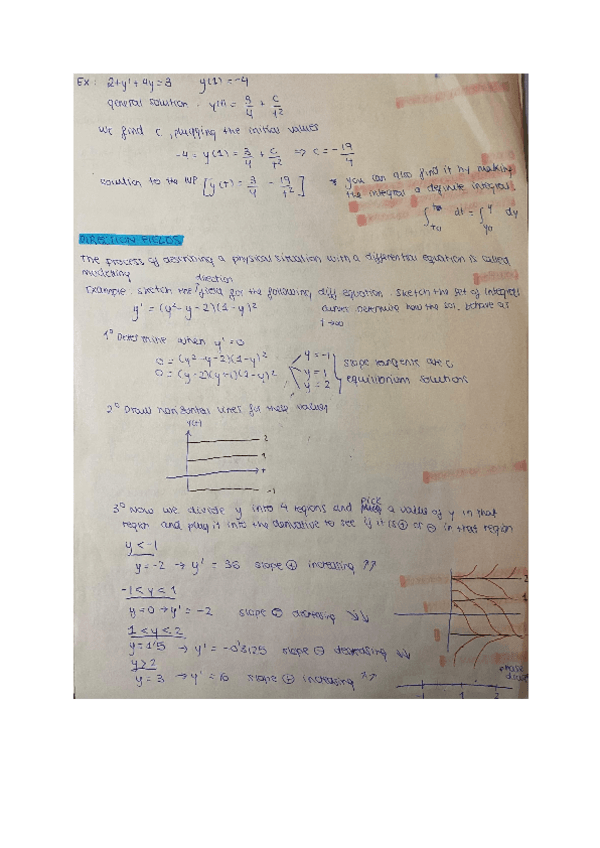 Ex: 2ty' + 4y = 3 y(1) = -4
general solution: y(t) = 3/4 + c/t²
We find c, plugging the initial values
-4 = y(1) = 3/4 + c/t² => c = -19/4
solution to the IVP [y(t) = 3/4 - 19/t²] * you can also find it by making
the integral a definite integral
∫ dt = ∫ dy
DIRECTION FIELDS
The process of describing a physical situation with a differential equation is called
modeling
Example. sketch the direction field for the following diff equation. sketch the set of integral
y' = (y² - y - 2)(1 - y)² curves. Determine how the sol. behave as
t→∞
1º Determine when y' = 0
0 = (y² - y - 2)(1 - y)²
0 = (y - 2)(y + 1)(1 - y)²
y = -1
y = 1
y = 2
slope tangents are 0
equilibrium solutions
2º Draw horizontal lines for these values
y(t)
2
1
t
-1
3º Now we divide y into 4 regions and pick a value of y in that
region and plug it into the derivative to see if it is ⊕ or ⊖ in that region
y < -1
y = -2 → y' = 36 slope ⊕ increasing ↗↗
-1 < y < 1
y = 0 → y' = -2 slope ⊖ decreasing ↘↘
1 < y < 2
y = 1'5 → y' = -0'3125 slope ⊖ decreasing ↘↘
y > 2
y = 3 → y' = 16 slope ⊕ increasing ↗↗
2
1
phase
-1 1 2